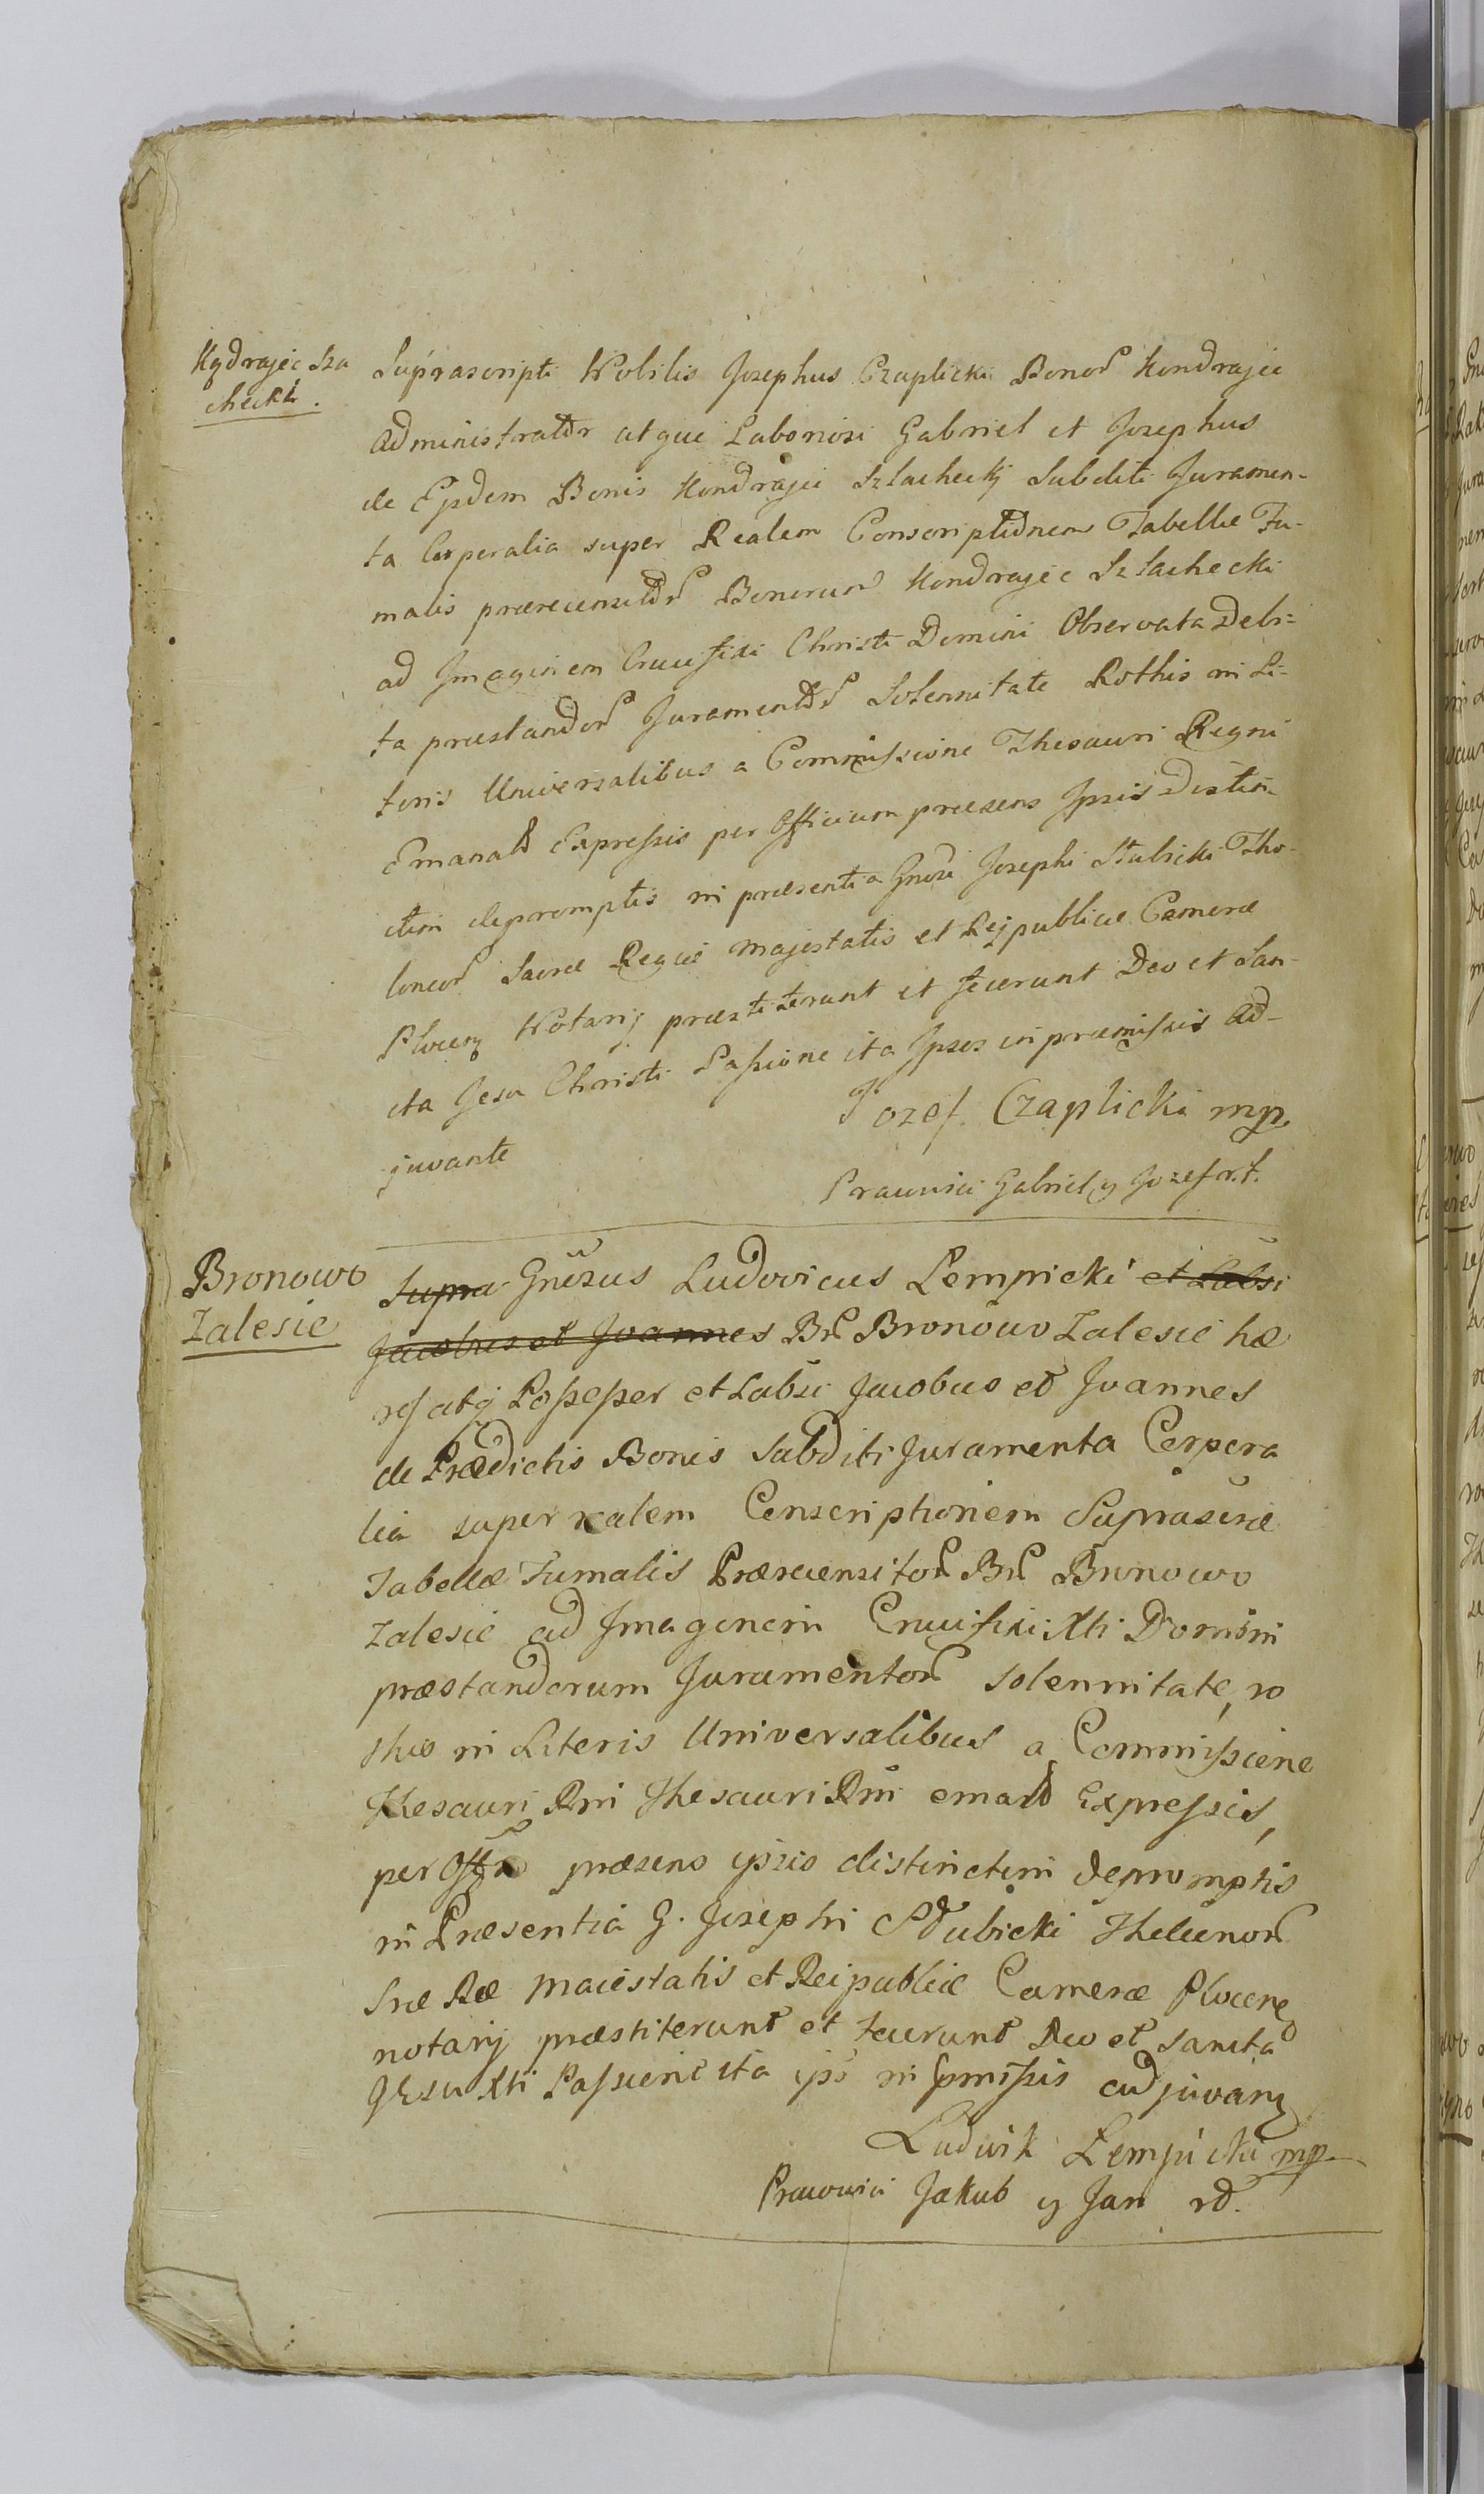 Kądrajec Szla
checki.
Suprascripti Nobilis Josephus Czaplicki Bonor Kondrajec
Administrator atque Laboriosi Gabriel et Josephus
de Ejsdem Bonis Kondrajec Szlachecki Subditi Juramen-
ta Corporalia super Realem Conscriptionem Tabellæ Fu-
malis præreiensitor Bonorum Kondrajec Szlachecki
ad Imaginem Crucifixi Christi Domini Observata Debi=
ta præstandor Juramentor Solennitate Rothis in Li-
teris Universalibus a Commissione Thesauri Regni
Emanat Expressis per Officium præsens Ipsis Distin-
ctim depromptis in præsentia Gnosi Josephi Stubicki The-
loneor Sacræ Regiæ Majestatis et Reipublicæ Cameræ
Plocen Notarij præstiterunt et fecerunt Deo et San-
cta Jesu Christi Passione ita Ipsos in præmissis Ad-
juvante
Jozef Czaplicki mp.
Pracowici Gabriel y Jozef r.t.
Bronowo
Zalesie
Supra Gnosus Ludovicus Lempicki et Labsi
Jacobus et Joannes Br Bronowo Zalesie hæ
res atq Possessor et Labsi Jacobus et Joannes
de Prædictis Bonis Subditi Juramenta Corpora
lia super realem Conscriptionem Suprascræ
Tabellæ Fumalis Præreiensitor Br Bronowo
Zalesie ad Imaginem Crucifixi Xti Domini
præstandorum Juramentor solennitate, ro
this in Literis Universalibus a Commissione
Thesauri Rni Thesauri Rni emart Expressis,
per Offm præsens ipsis distinctim depromptis
in Præsentia G. Josephi Stubicki Theleonor
Sræ Ræ Maiestatis et Reipublicæ Cameræ Plocen
notarij præstiterunt et fecerunt Deo et Sancta
Jesu Xti Passione ita ips in pmissis adjuvan
Ludwik Lempicki mp
Pracowici Jakub y Jan rt.